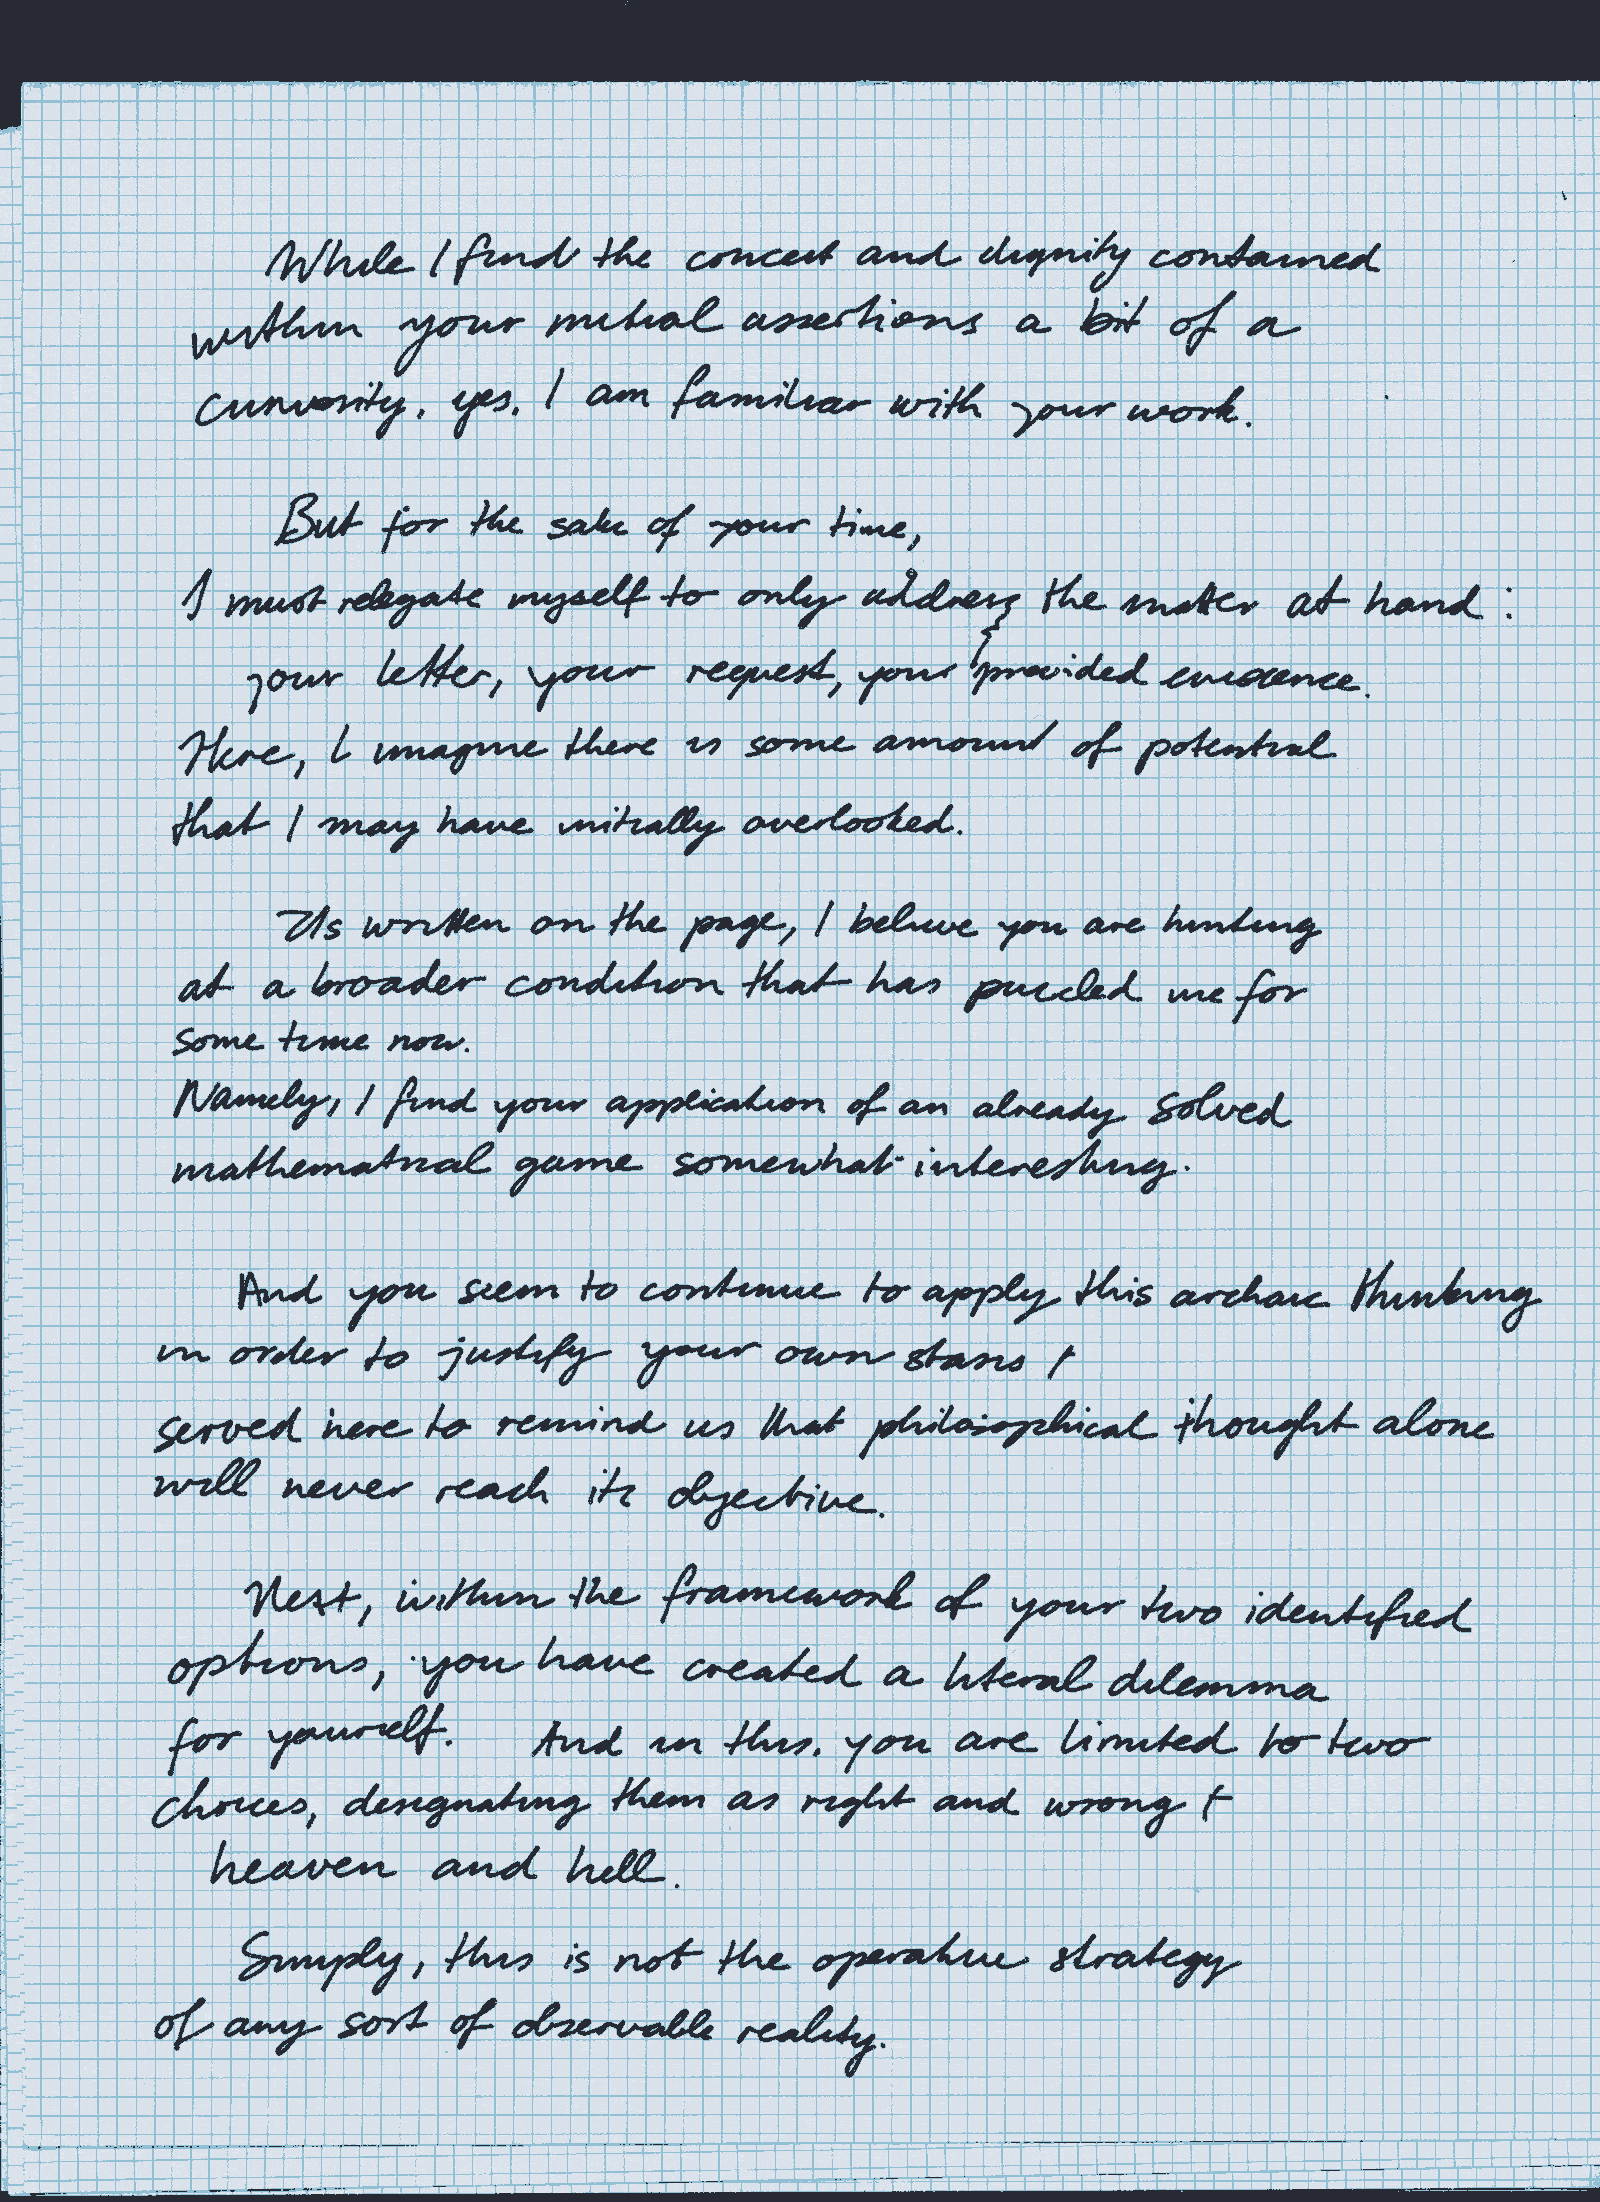 While I find the conceit and dignity contained
within your initial assertions a bit of a
curiosity, yes, I am familiar with your work.
But for the sake of your time,
I must relegate myself to only address the matter at hand:
your letter, your request, your provided evidence.
Here, I imagine there is some amount of potential
that I may have initially overlooked.
As written on the page, I believe you are hinting
at a broader condition that has puzzled me for
some time now.
Namely, I find your application of an already solved
mathematical game somewhat interesting.
And you seem to continue to apply this archaic thinking
in order to justify your own stasis +
served here to remind us that philosophical thought alone
will never reach its objective.
Next, within the framework of your two identified
options, you have created a literal dilemma
for yourself. And in this, you are limited to two
choices, designating them as right and wrong +
heaven and hell.
Simply, this is not the operative strategy
of any sort of observable reality.